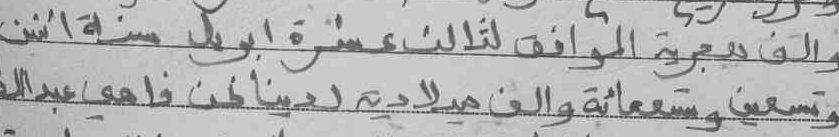 والف هجرية الموافق لثالث عشرة ابريل سنة اثنين
وتسعين وتسعمائة والف ميلادية لدينا نحن قاضي عبد